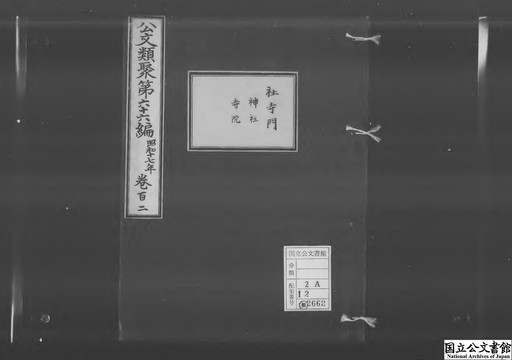 公文類聚第六十六編 昭和十七年 巻百二
社寺門
神社
寺院
国立公文書館
分類
配架番号
2 A
12
2662
国立公文書館
National Archives of Japan